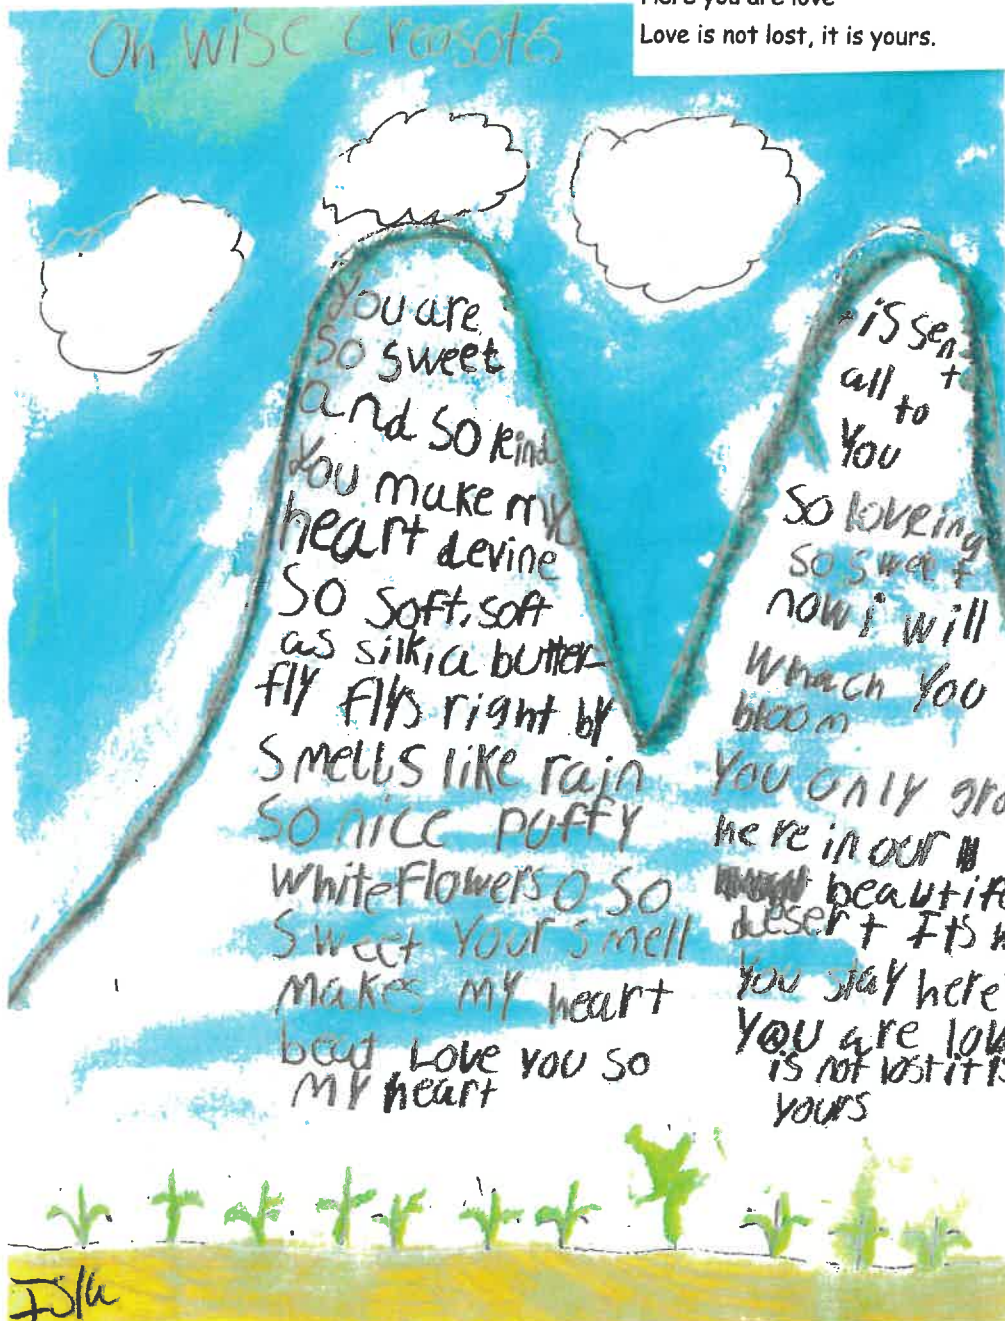 Here you are love
Love is not lost, it is yours.
Oh wise creosotes
You are
so sweet
and so kind
You make my
heart devine
So soft, soft
as silk, a butter
fly flys right by
Smells like rain
so nice puffy
white flowers o so
sweet Your smell
makes my heart
beat Love you so
my heart
is sent
all to
You
So loveing
so sweet
now i will
whach you
bloom
You only gro
here in our
beautifu
desert Its w
You stay here
you are lov
is not lost it is
yours